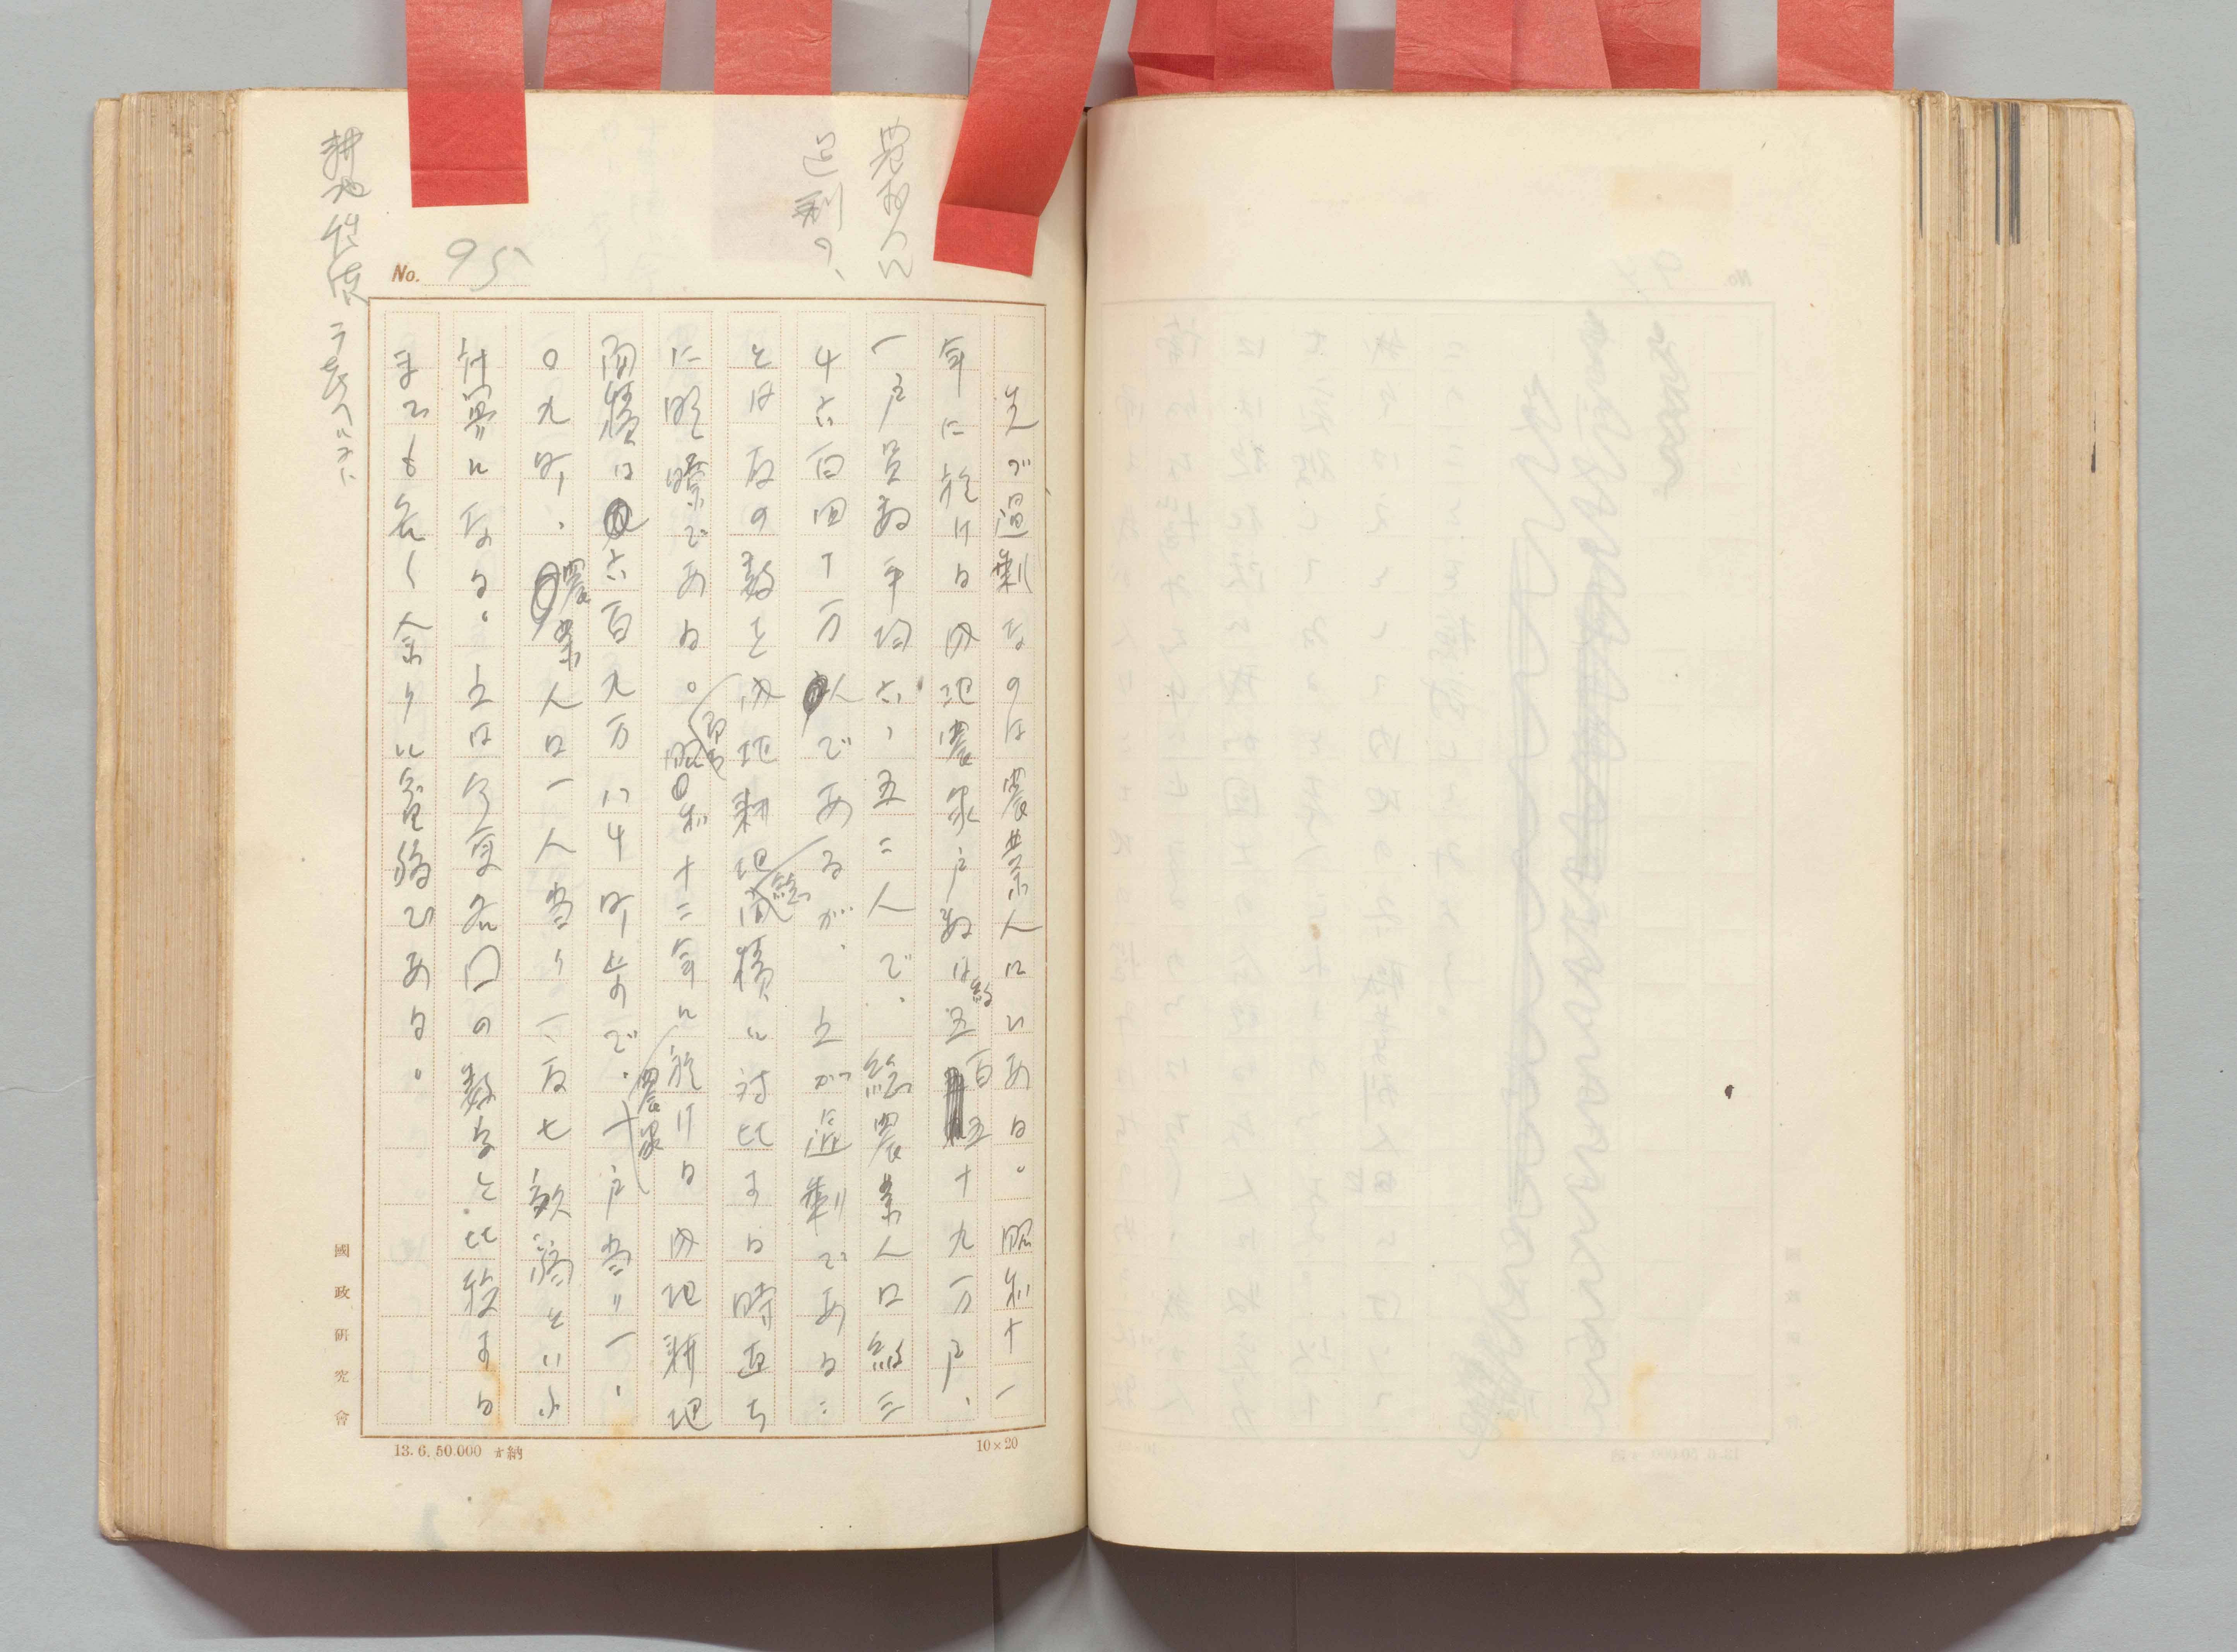 農村人口
過剰の、
No. 95
先づ過剰なのは農業人口である。昭和十一
年に於ける内地農家戸数は約五百五十九万戸、
一戸員数平均六、五二人で、総農業人口約三
千六百四十万人であるが、之が過剰である
とは右の数を内地耕地総面積に対比する時直ち
に明瞭である。即ち昭和十二年に於ける内地耕地
面積は六百九万八千町歩で、農家一戸当リ一、
〇九町、農業人口一人当り一反七畝弱といふ
計算になる。之は今更各国の数字と比較する
までも無く余りに貧弱である。
耕地
國政研究會
13. 6. 50.000 納
10×20